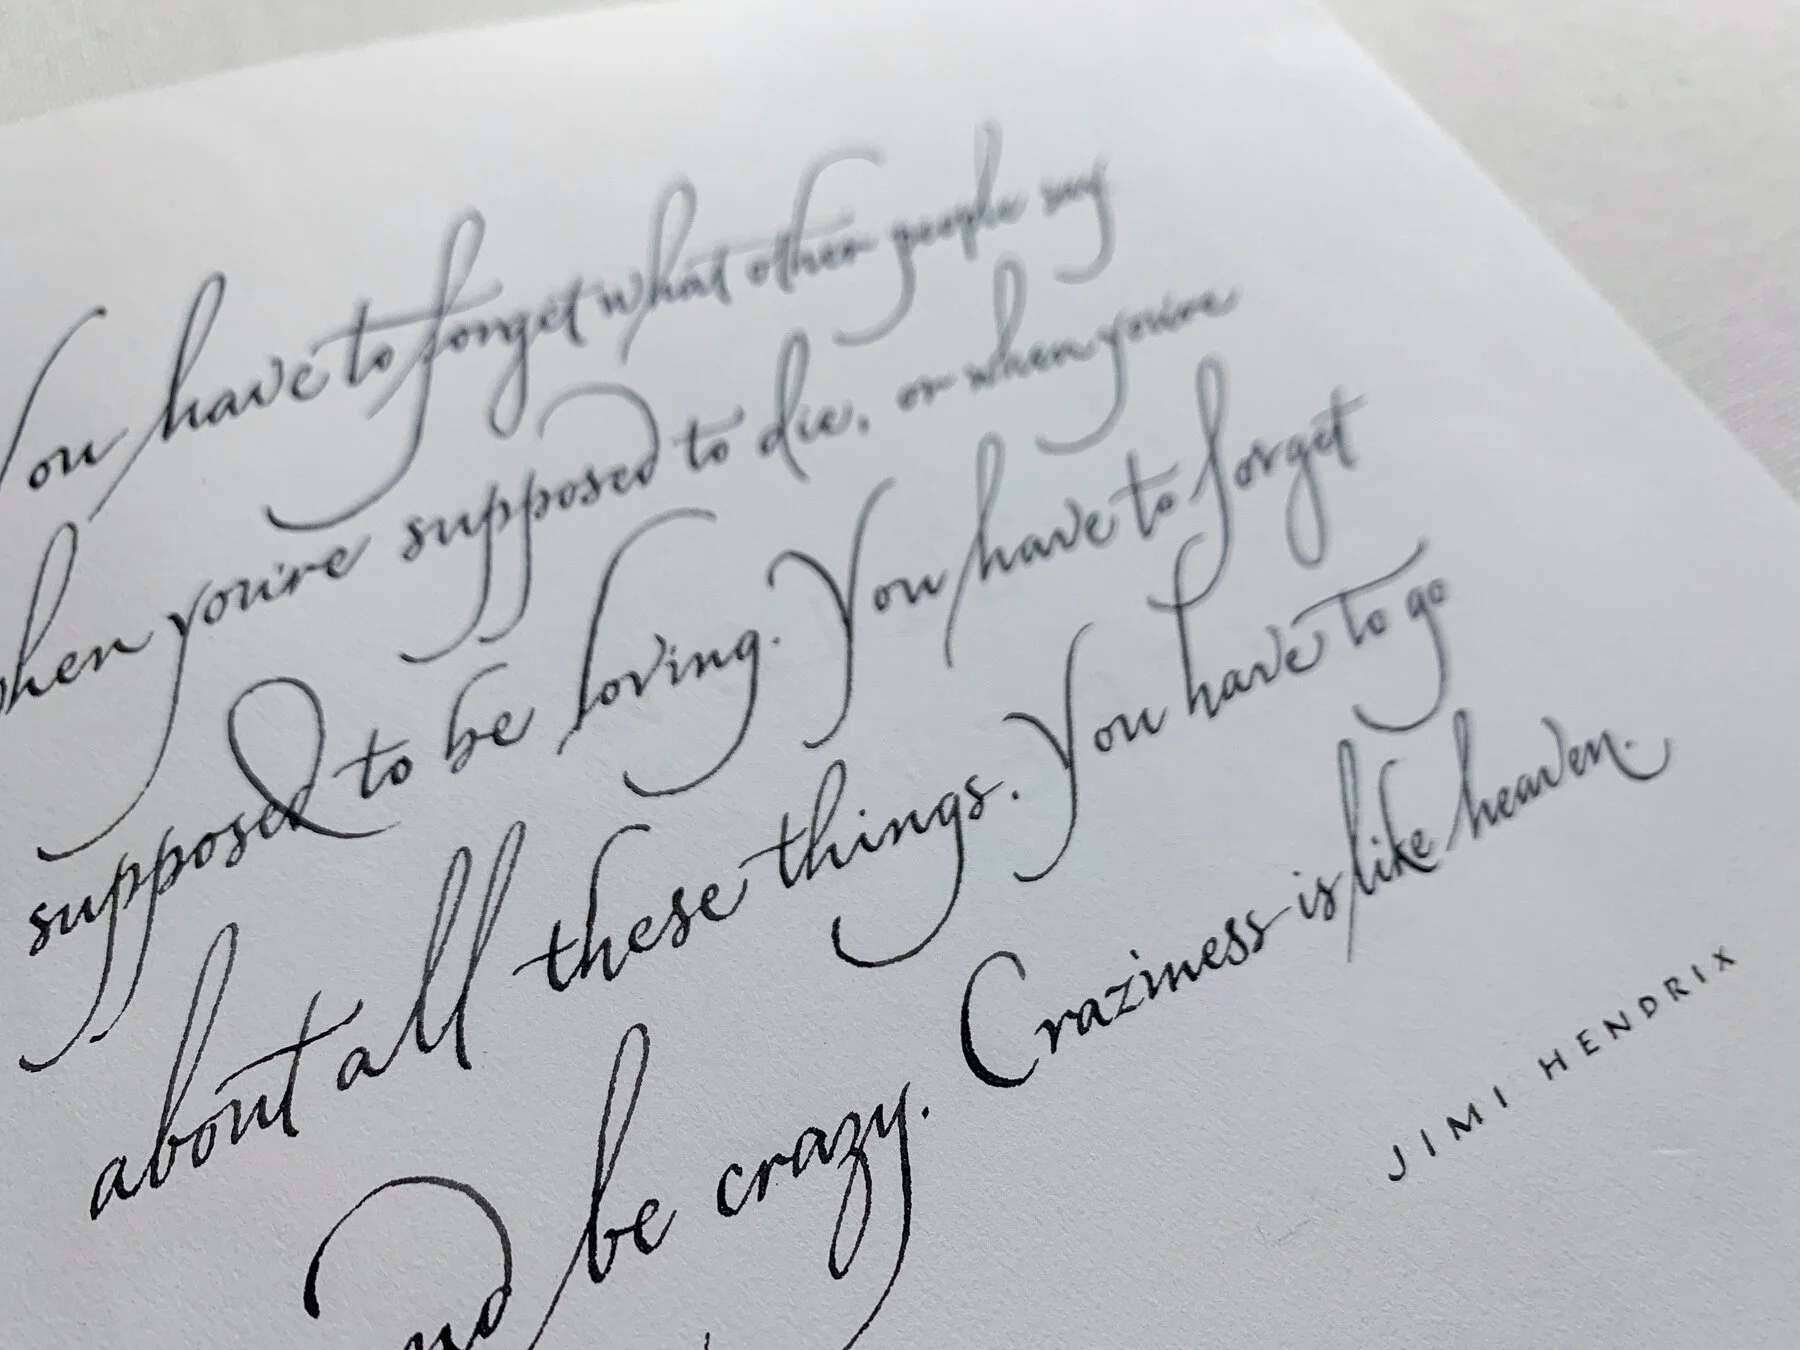 You have to forget what other people say
when you're supposed to die, or when you're
supposed to be loving. You have to forget
about all these things. You have to go
and be crazy. Craziness is like heaven.
JIMI HENDRIX